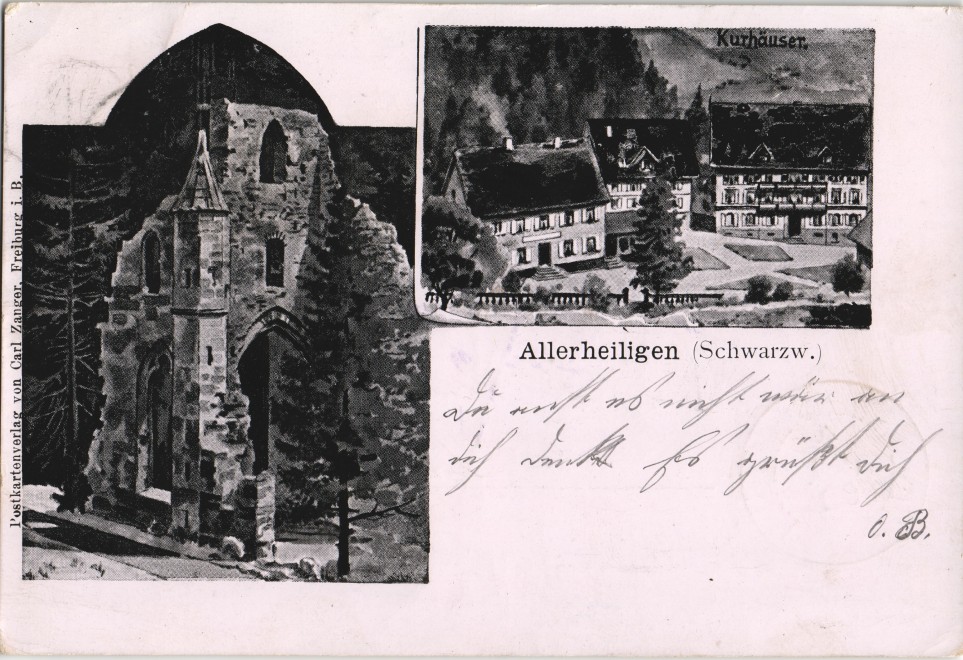 Kurhäuser.
Allerheiligen (Schwarzw.)
Du nicht wär an
dich denkt Es grüßt dich
O. B.
Postkartenverlag von Carl Zanger, Freiburg i. B.